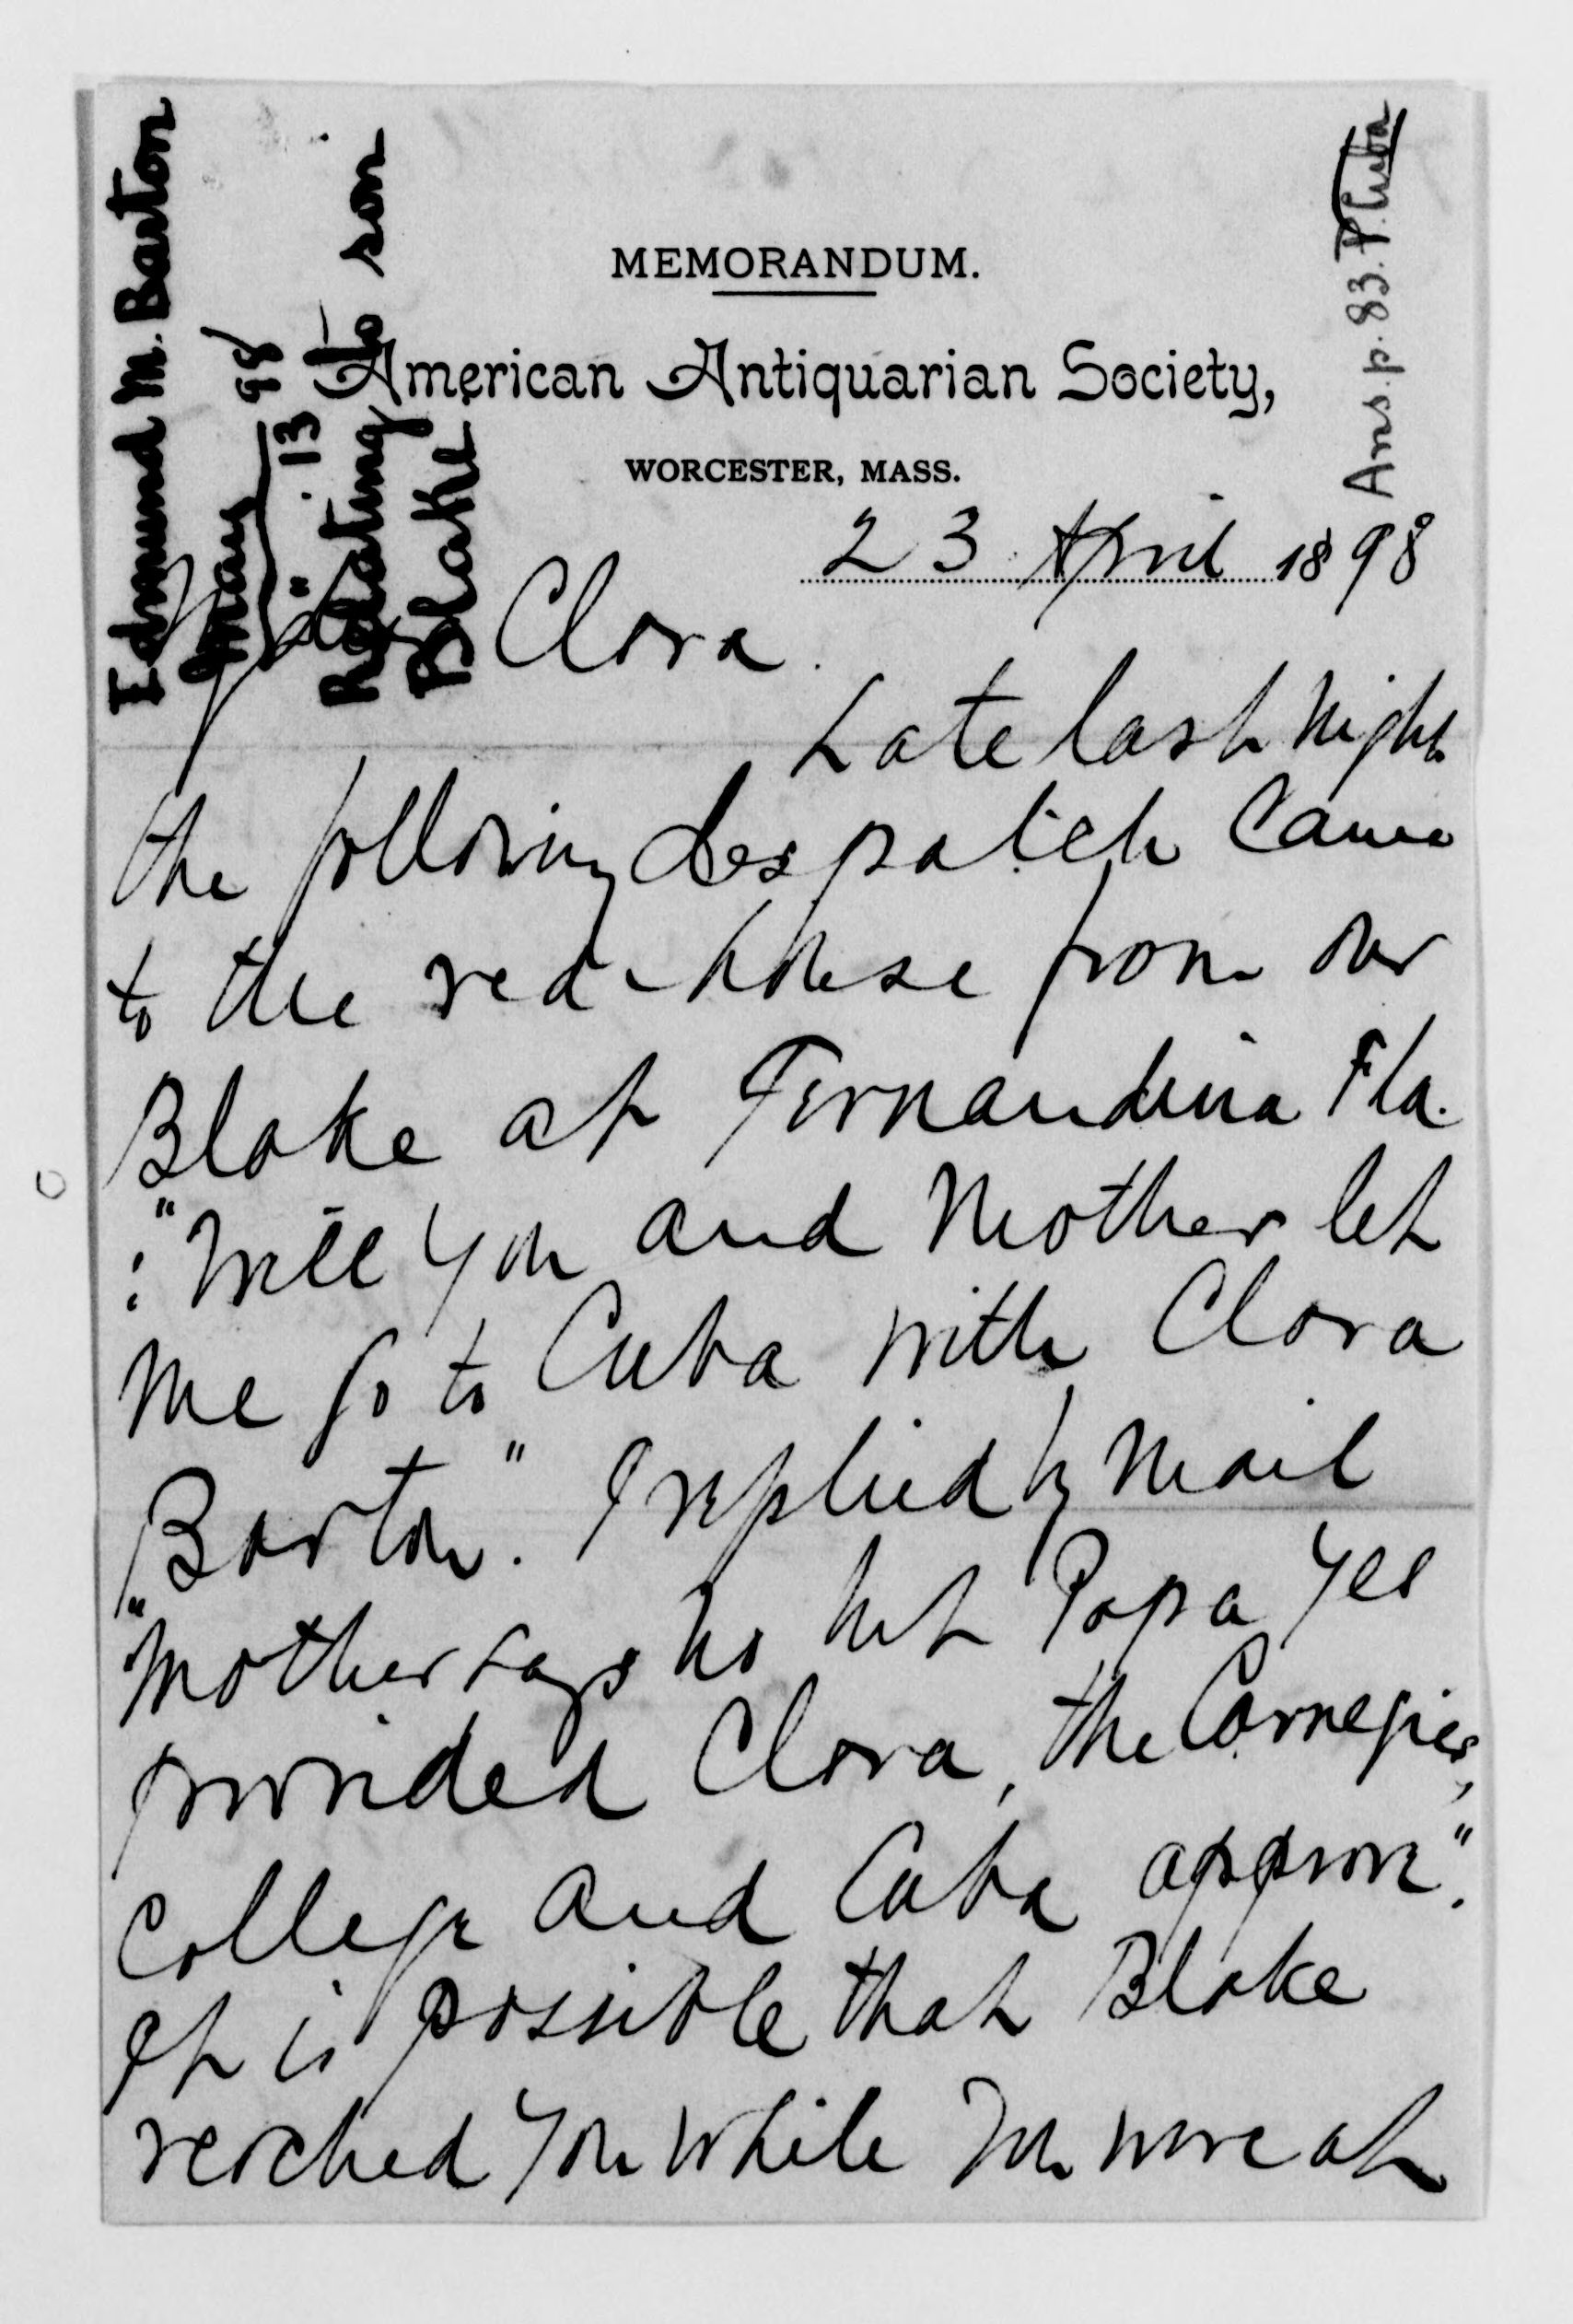 Edmund M. Barton
May 98
" 13
Relating to son
Blake
Ans. p. 83. P. Cuba
MEMORANDUM.
American Antiquarian Society,
WORCESTER, MASS.
23 April 1898
My dear Clara.
Late last night
the following despatch came
to the red-house from our
Blake at Fernandina Fla.
: "Will you and Mother let
me go to Cuba with Clara
Barton." I replied by mail
"Mother says no but Papa yes
provided Clara, the Carnegies,
College and Cuba approve".
It is possible that Blake
reached you while you were at